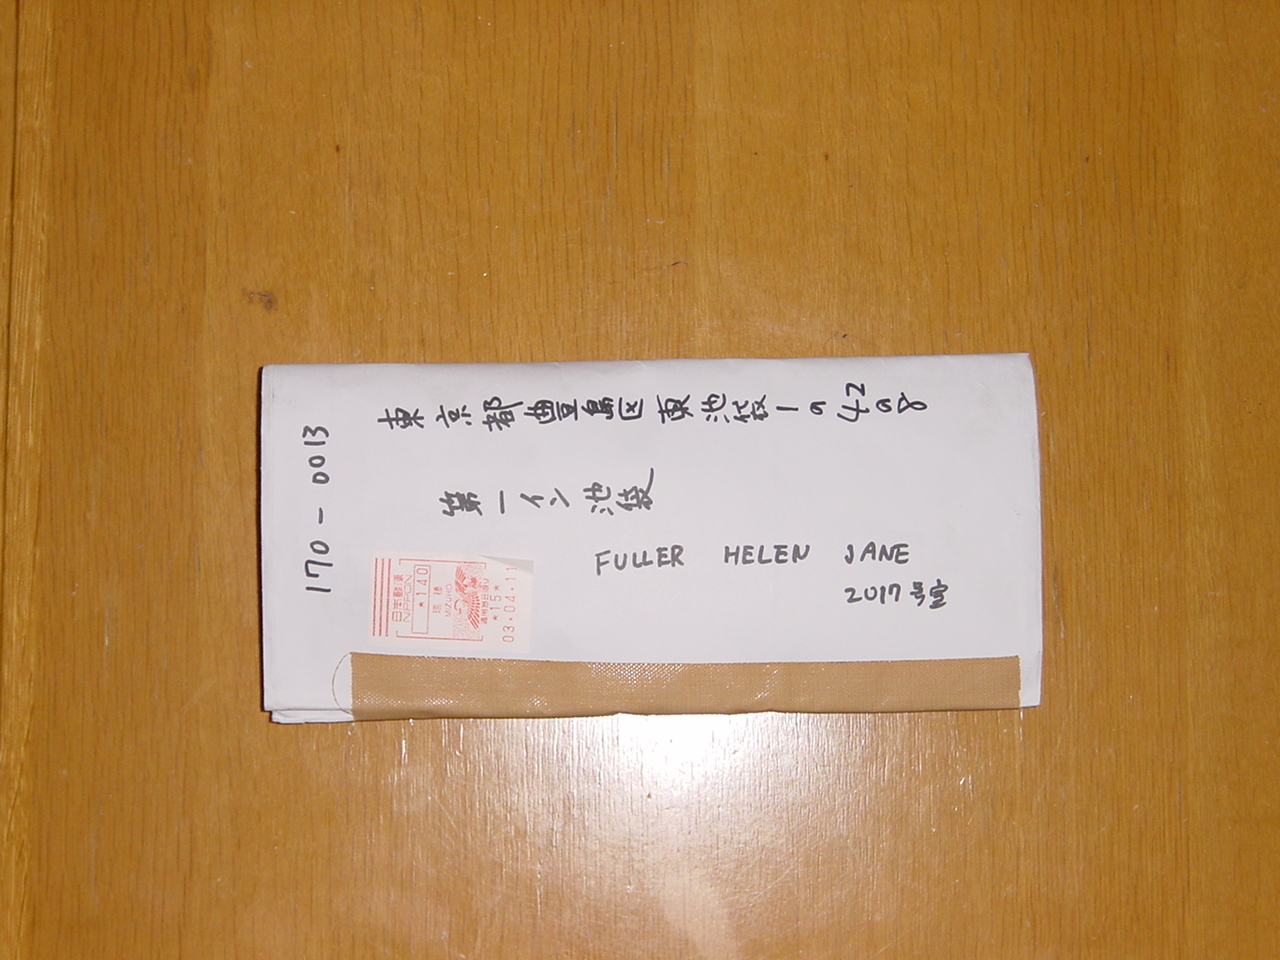 170-0013
東京都豊島区東池袋1の42の8
第一イン池袋
FULLER HELEN JANE
2017号室
日本郵便
NIPPON
*140
瑞穂
MIZUHO
*15*
03.04.11